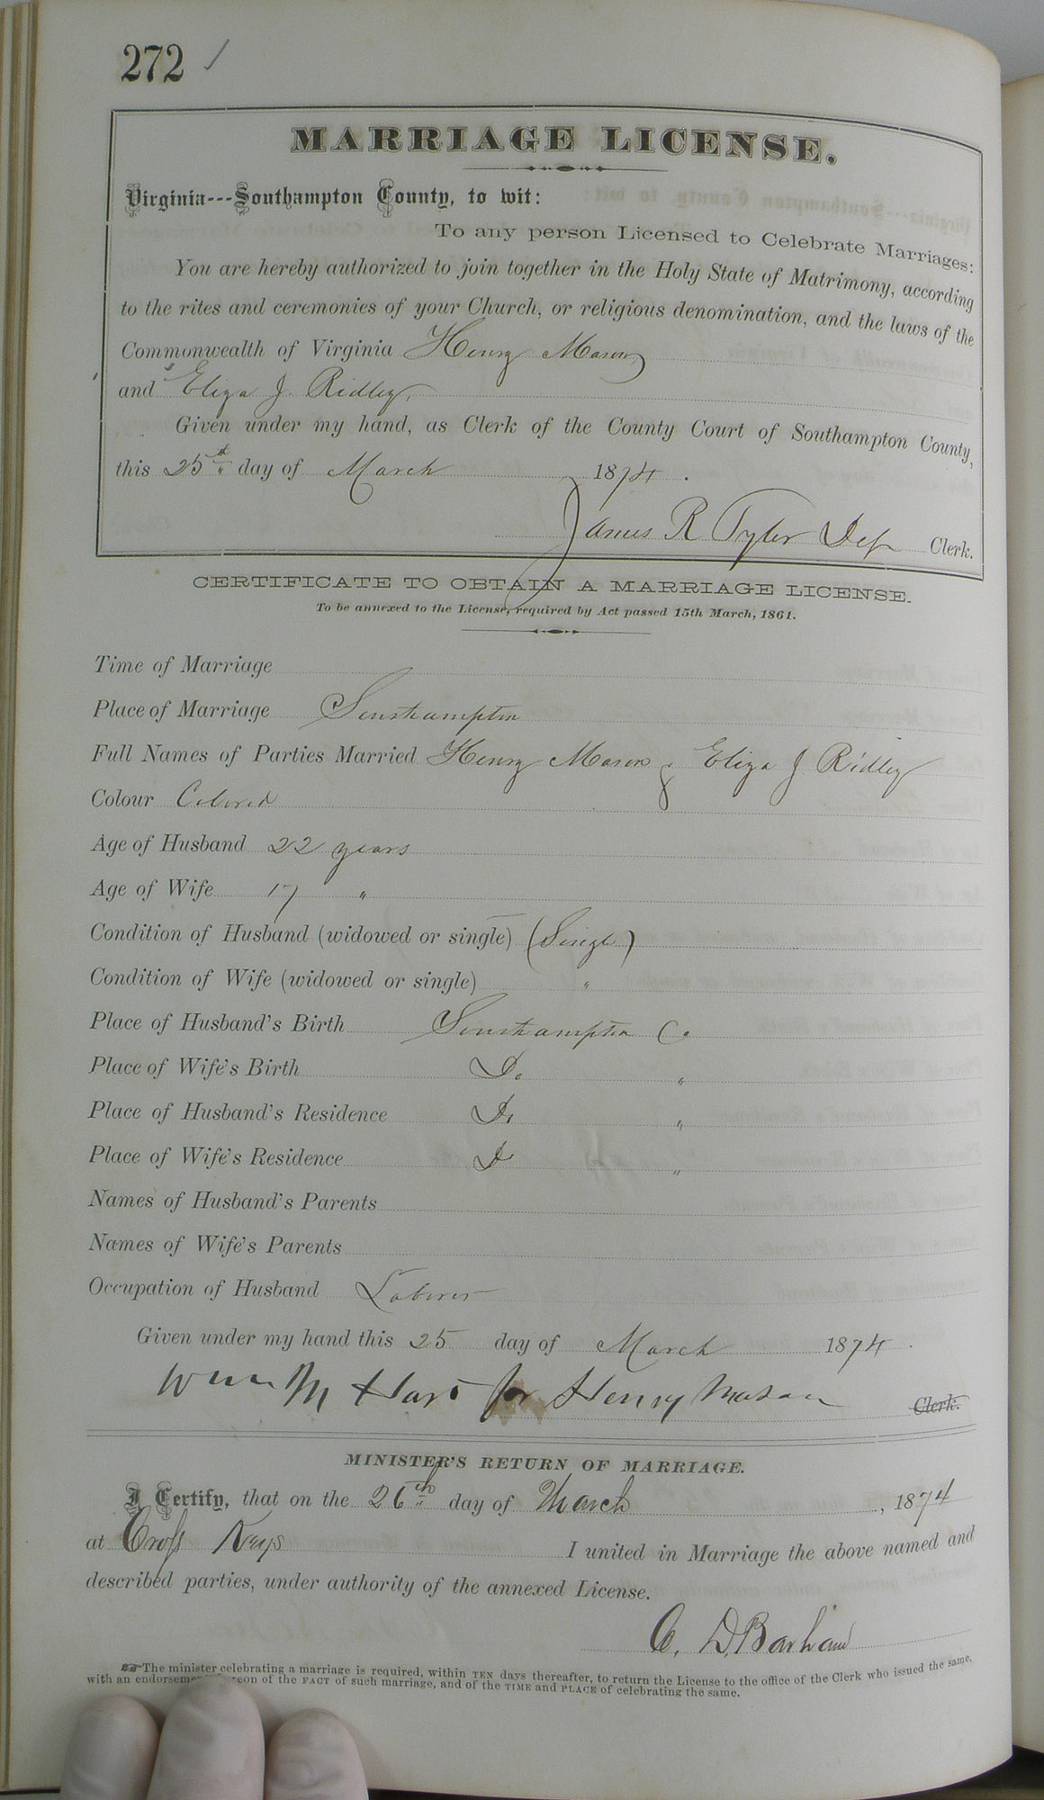 272
MARRIAGE LICENSE.
Virginia---Southampton County, to wit:
To any person Licensed to Celebrate Marriages:
You are hereby authorized to join together in the Holy State of Matrimony, according
to the rites and ceremonies of your Church, or religious denomination, and the laws of the
Commonwealth of Virginia Henry Mason
and Eliza J. Ridley
Given under my hand, as Clerk of the County Court of Southampton County,
this 25th day of March 1874.
James R Tyler Dep Clerk.
CERTIFICATE TO OBTAIN A MARRIAGE LICENSE.
To be annexed to the License, required by Act passed 15th March, 1861.
Time of Marriage
Place of Marriage Southampton
Full Names of Parties Married Henry Mason & Eliza J Ridley
Colour Colored
Age of Husband 22 years
Age of Wife 17 "
Condition of Husband (widowed or single) (Single)
Condition of Wife (widowed or single) "
Place of Husband's Birth Southampton Co
Place of Wife's Birth Do "
Place of Husband's Residence Do "
Place of Wife's Residence D "
Names of Husband's Parents
Names of Wife's Parents
Occupation of Husband Laborer
Given under my hand this 25 day of March 1874.
Wm M Hart for Henry Mason Clerk.
MINISTER'S RETURN OF MARRIAGE.
I Certify, that on the 26th day of March, 1874
at Cross Keys I united in Marriage the above named and
described parties, under authority of the annexed License.
C. D. Barham
The minister celebrating a marriage is required, within TEN days thereafter, to return the License to the office of the Clerk who issued the same,
with an of the FACT of such marriage, and of the TIME and PLACE of celebrating the same.